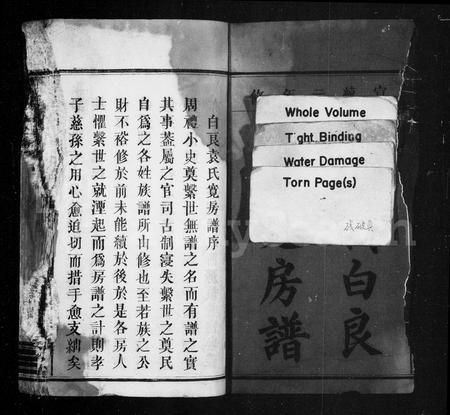 宣統二年修
白良
房譜
Whole Volume
Tight Binding
Water Damage
Torn Page(s)
白良袁氏寬房譜序
周禮小史奠繫世無譜之名而有譜之實
其事蓋屬之官司古制寖失繫世之奠民
自為之各姓族譜所由修也至若族之公
財不裕修於前未能續於後於是各房人
士懼繫世之就湮起而為房譜之計則孝
子慈孫之用心愈迫切而措手愈支絀矣